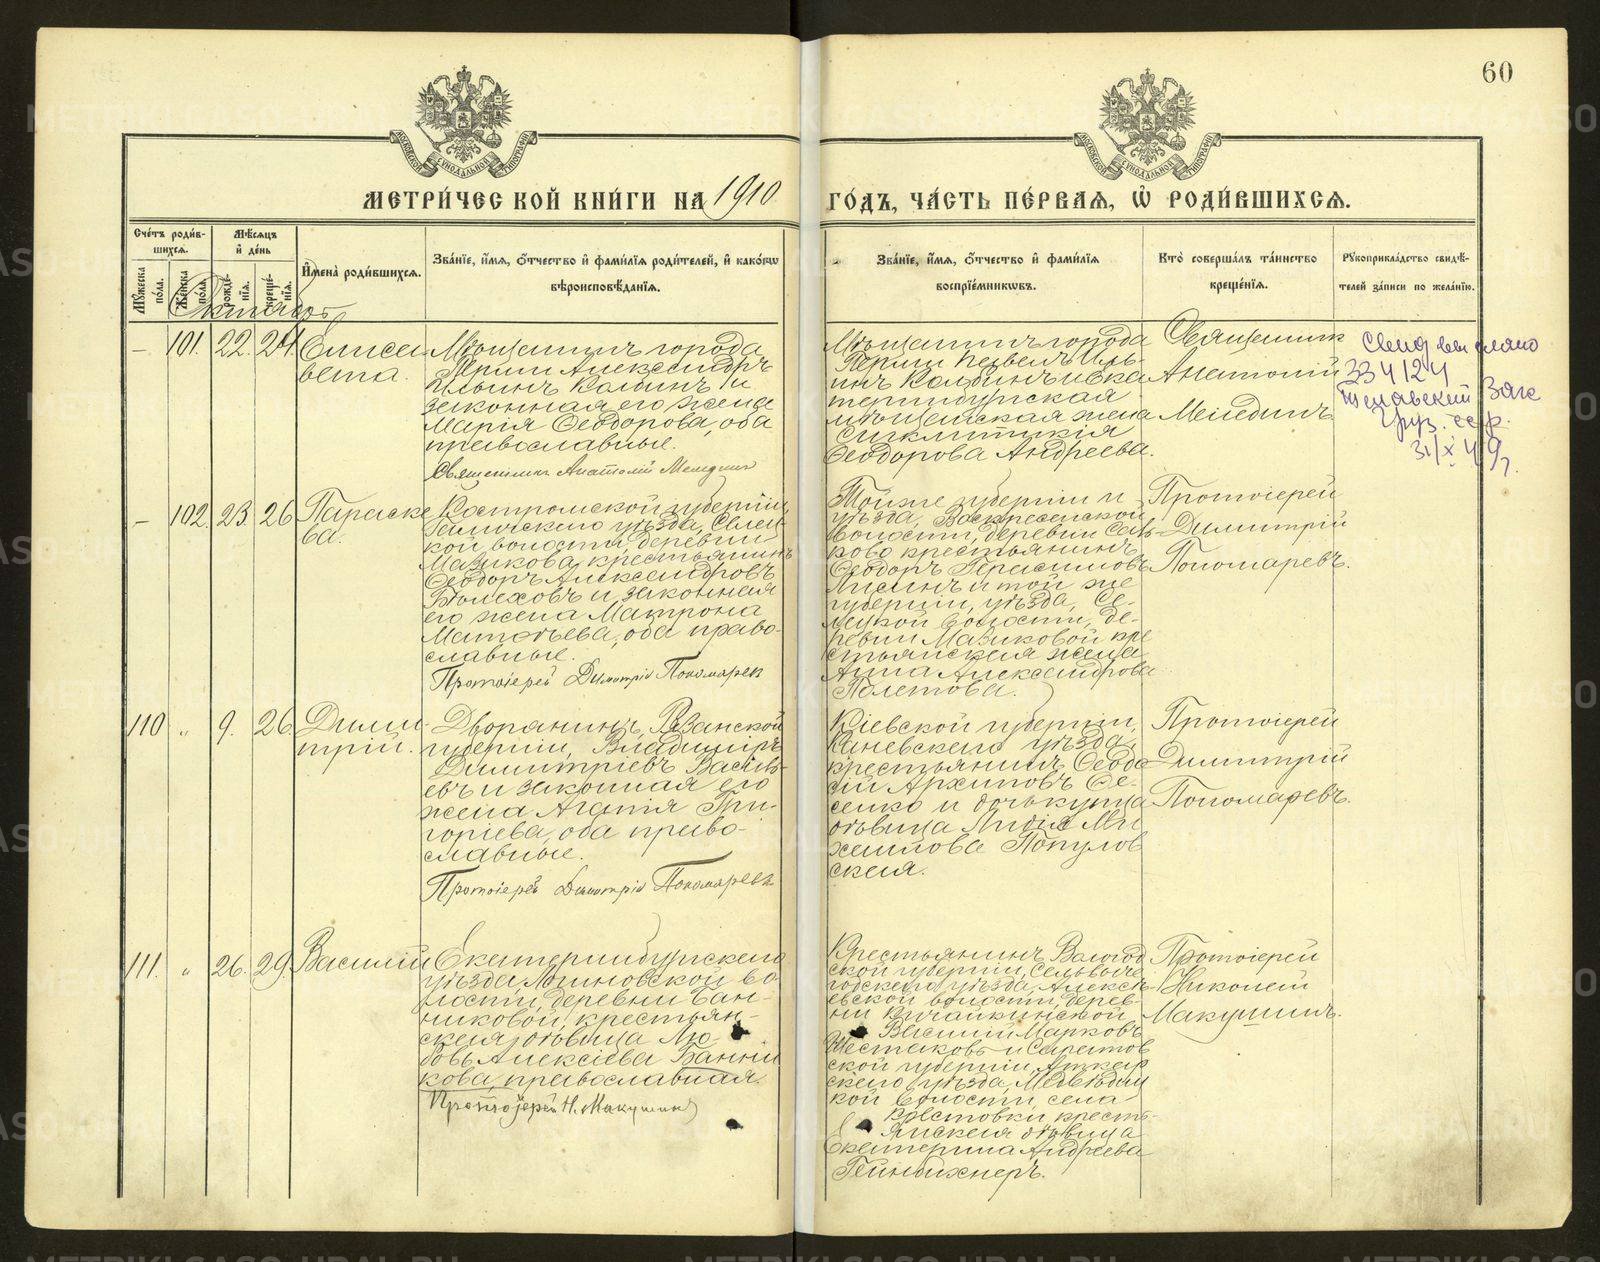 60
МЕТРИЧЕСКОЙ КНИГИ НА 1910 ГОДЪ, ЧАСТЬ ПЕРВАЯ, Ѡ РОДИВШИХСЯ.
Счетъ родив-
шихся.
Мужеска пола.
Женска пола.
Мѣсяцъ
и день
рожде-
нія.
креще-
нія.
Имена родившихся.
Званіе, имя, отчество и фамилія родителей, и какогѡ
вѣроисповѣданія.
Званіе, имя, отчество и фамилія
воспріемниковъ.
Кто совершалъ таинство
крещенія.
Рукоприкладство свидѣ-
телей записи по желанію.
Октябрь
– 101. 22. 24.
Елиса-
вета.
Мѣщанинъ города
Перми Александръ
Ильинъ Колбинъ и
законная его жена
Марія Ѳеодорова, оба
православные.
Священникъ Анатолій Меледин
Мѣщанинъ города
Перми Павелъ Иль-
инъ Колбинъ и Ека
теринбургская
мѣщанская жена
Синклитикія
Ѳеодорова Андреева.
Священник
Анатолій
Мелединъ
Свид выслано
334124
Зак
Груз. сср.
31/X 49 г.
– 102. 23. 26
Параске
ва.
Костромской губерніи,
Галичскаго уѣзда,
кой волости, деревни
Мазикова, крестьянинъ
Ѳеодоръ Александровъ
и законная
его жена Матрона
Матѳѣева, оба право-
славные.
Протоіерей Димитрій Пономарев
Той же губерніи и
уѣзда, Воскресенской
волости, деревни
ково крестьянинъ
Ѳеодоръ Герасимовъ
и той же
губерніи, уѣзда,
волости, де-
ревни Мазиковой кре
стьянская жена
Анна Александрова
Полетова.
Протоіерей
Димитрій
Пономаревъ.
110 " 9. 26.
Дими-
трій.
Дворянинъ, Рязанской
губерніи, Владиміръ
Димитріевъ Василь-
евъ и законная его
жена Агапія Гри-
горіева, оба право-
славные.
Протоіерей Димитрій Пономарев
Кіевской губерніи,
Каневскаго уѣзда,
крестьянинъ Ѳеодо
сій Архиповъ Се-
сенко и дочь купца
дѣвица Лидія Ми
хайлова Популов
ская.
Протоіерей
Димитрій
Пономаревъ.
111. " 26. 29.
Василій
Екатеринбургскаго
уѣзда, Логиновской во-
лости, деревни Бан-
никовой, крестьян-
ская дѣвица Лю-
бовь Алексіева Банни
кова, православная.
Протоіерей Н. Макушинъ
Крестьянинъ Вологод
ской губерніи, Сольвыче
годскаго уѣзда, Алексѣ-
евской волости, дерев-
ни Кичайкинской
Василій Марковъ
Шестаковъ и Саратов
ской губерніи, Аткар
скаго уѣзда, Медвѣдиц
кой волости, села
Крестовки кресть-
янская дѣвица
Екатерина Андреева
Гейнбихнеръ.
Протоіерей
Николай
Макушинъ.